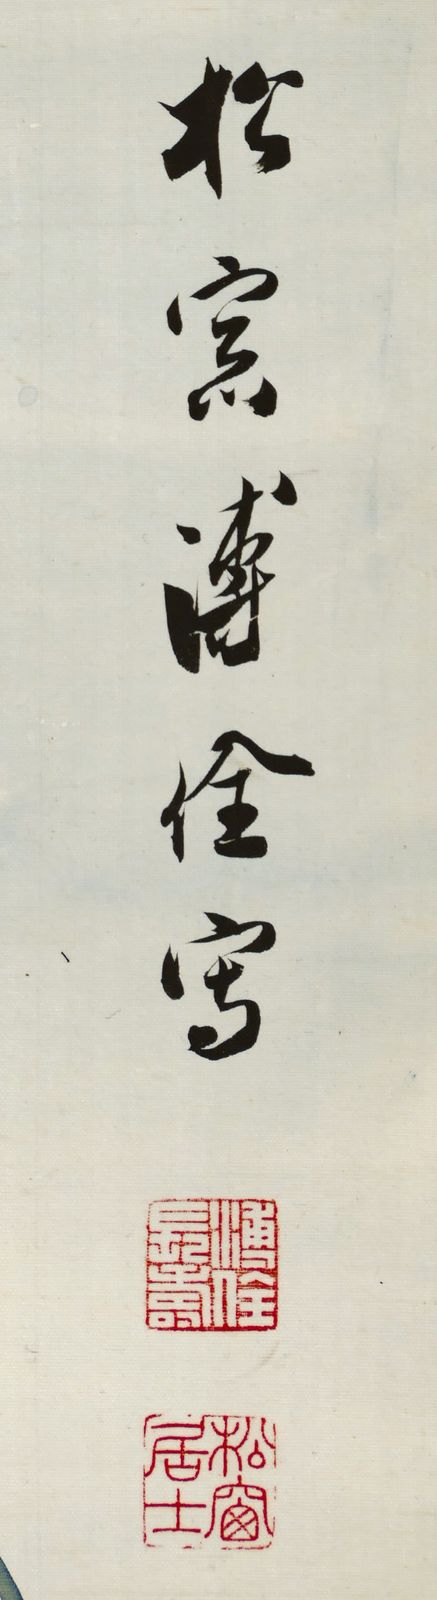 松窗溥佺寫
溥佺
長壽
松窗
居士